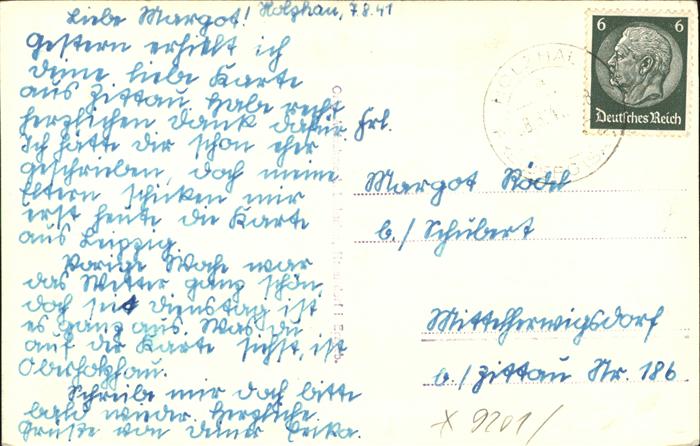 Liebe Margot! Holzhau, 7.8.41
Gestern erhielt ich
deine liebe Karte
aus Zittau. Habe recht
herzlichen Dank dafür.
Ich hätte dir schon eher
geschrieben, doch meine
Eltern schicken mir
erst heute die Karte
aus Leipzig.
Vorige Woche war
das Wetter ganz schön,
doch seit Dienstag ist
es ganz aus. Was du
auf der Karte siehst, ist
Oberholzhau.
Schreibe mir doch bitte
bald wieder. Herzliche
Grüße von deiner Erika.
6 6
Deutsches Reich
HOLZHAU
Frl.
Margot Rödel
b./ Schubert
Mittelherwigsdorf
b./ Zittau Nr. 186
x 9201/